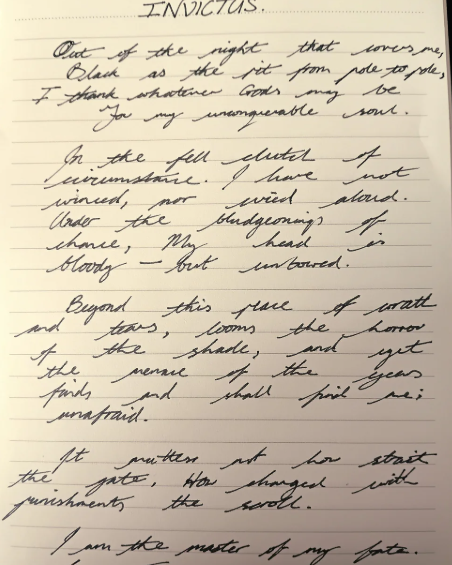 INVICTUS.
Out of the night that covers me,
Black as the pit from pole to pole,
I thank whatever Gods may be
For my unconquerable soul.
In the fell clutch of
circumstance. I have not
winced, nor cried aloud.
Under the bludgeonings of
chance, My head is
bloody – but unbowed.
Beyond this place of wrath
and tears, looms the horror
of the shade, and yet
the menace of the years
finds and shall find me;
unafraid.
It matters not how strait
the gate, How charged with
punishments the scroll.
I am the master of my fate.